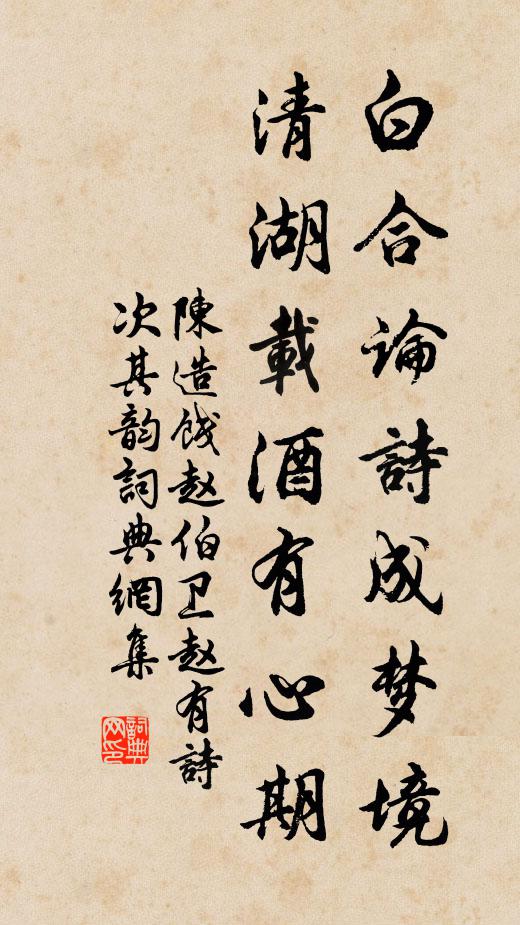 白合論詩成梦境
清湖載酒有心期
陳造餞赵伯卫赵有詩
次其韵詞典網集
詞典網印